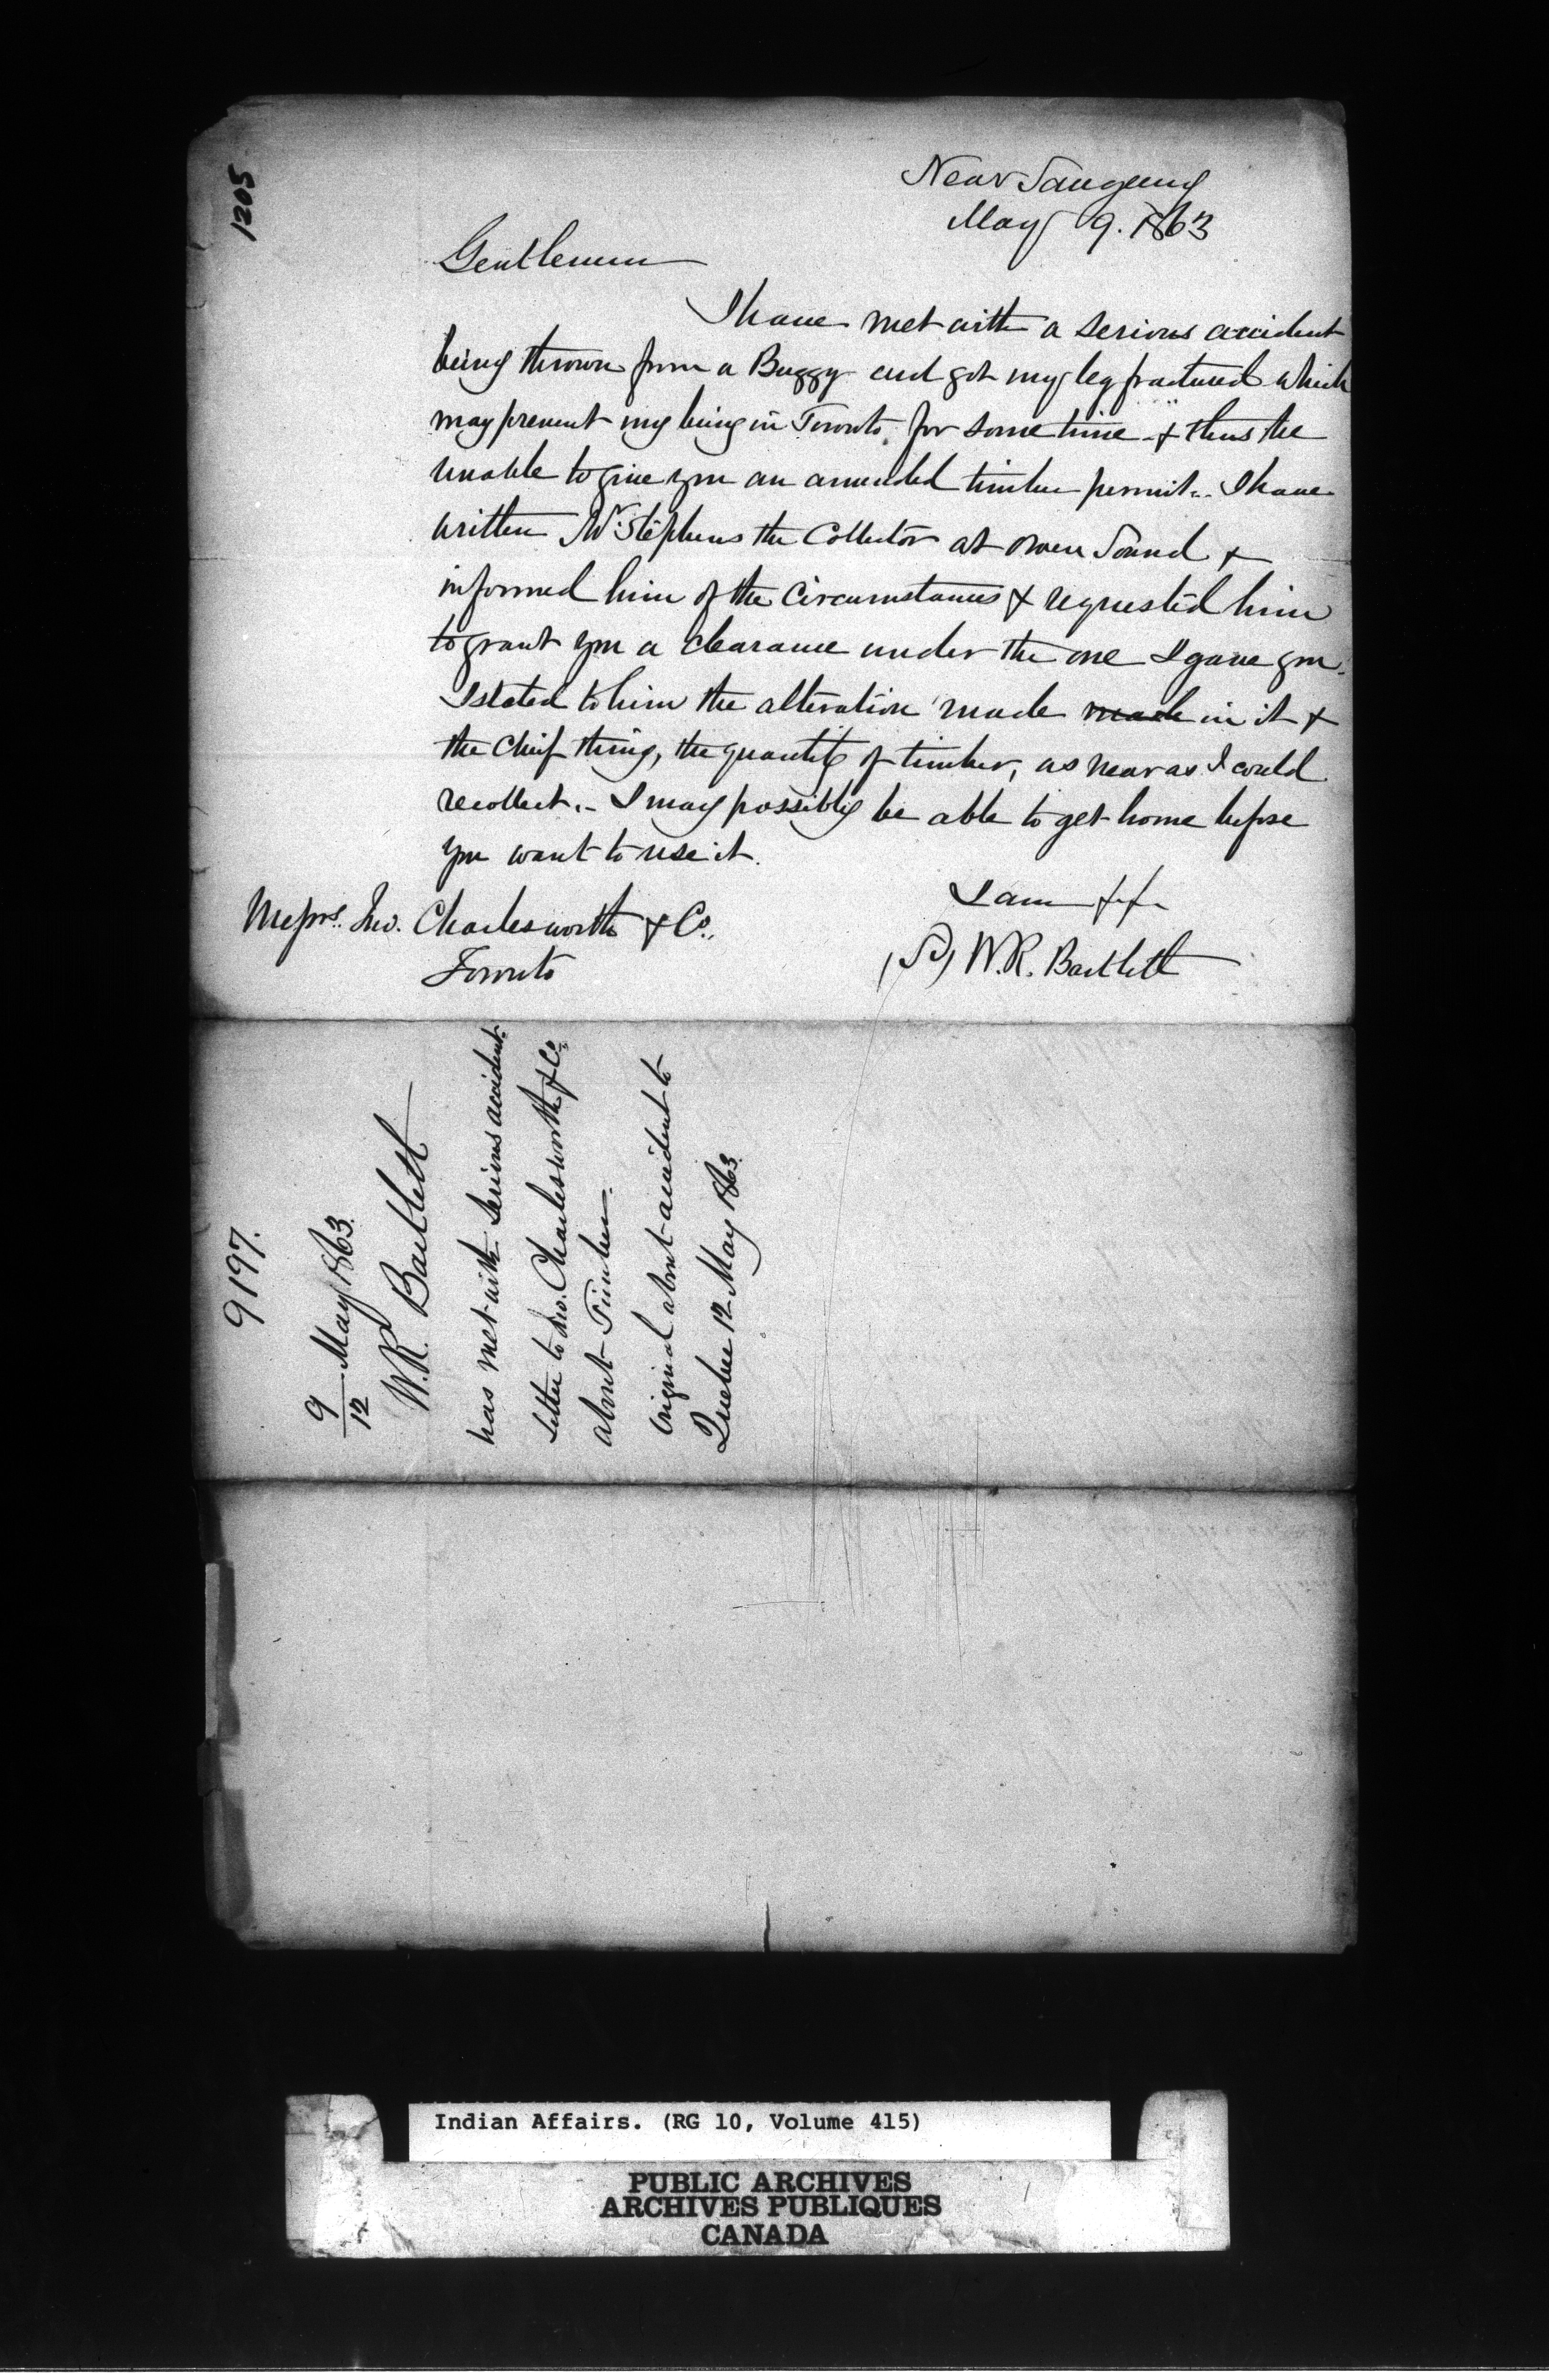 1205
Near Saugeeng
May 9. 1863
Gentlemen
I have met with a serious accident
being thrown from a Buggy and got my leg fractured which
may prevent my being in Toronto for some time & thus be
unable to give you an amended timber permit.. I have
written Mr. Stephens the Collector at Owen Sound &
informed him of the Circumstances & requested him
to grant you a clearance under the one I gave you.
I stated to him the alteration made made in it &
the chief thing, the quantity of timber, as near as I could
recollect.- I may possibly be able to get home before
you want to use it.
I am &.&.
Messrs. Jno. Charlesworth & Co.,
Toronto
(Sd) W.R. Bartlett
9197.
9/12 May 1863.
W.R. Bartlett
has met with serious accident-
letter to Jno. Charlesworth & Co.
about Timber.
Original about accident to
Quebec 12 May 1863.
Indian Affairs. (RG 10, Volume 415)
PUBLIC ARCHIVES
ARCHIVES PUBLIQUES
CANADA